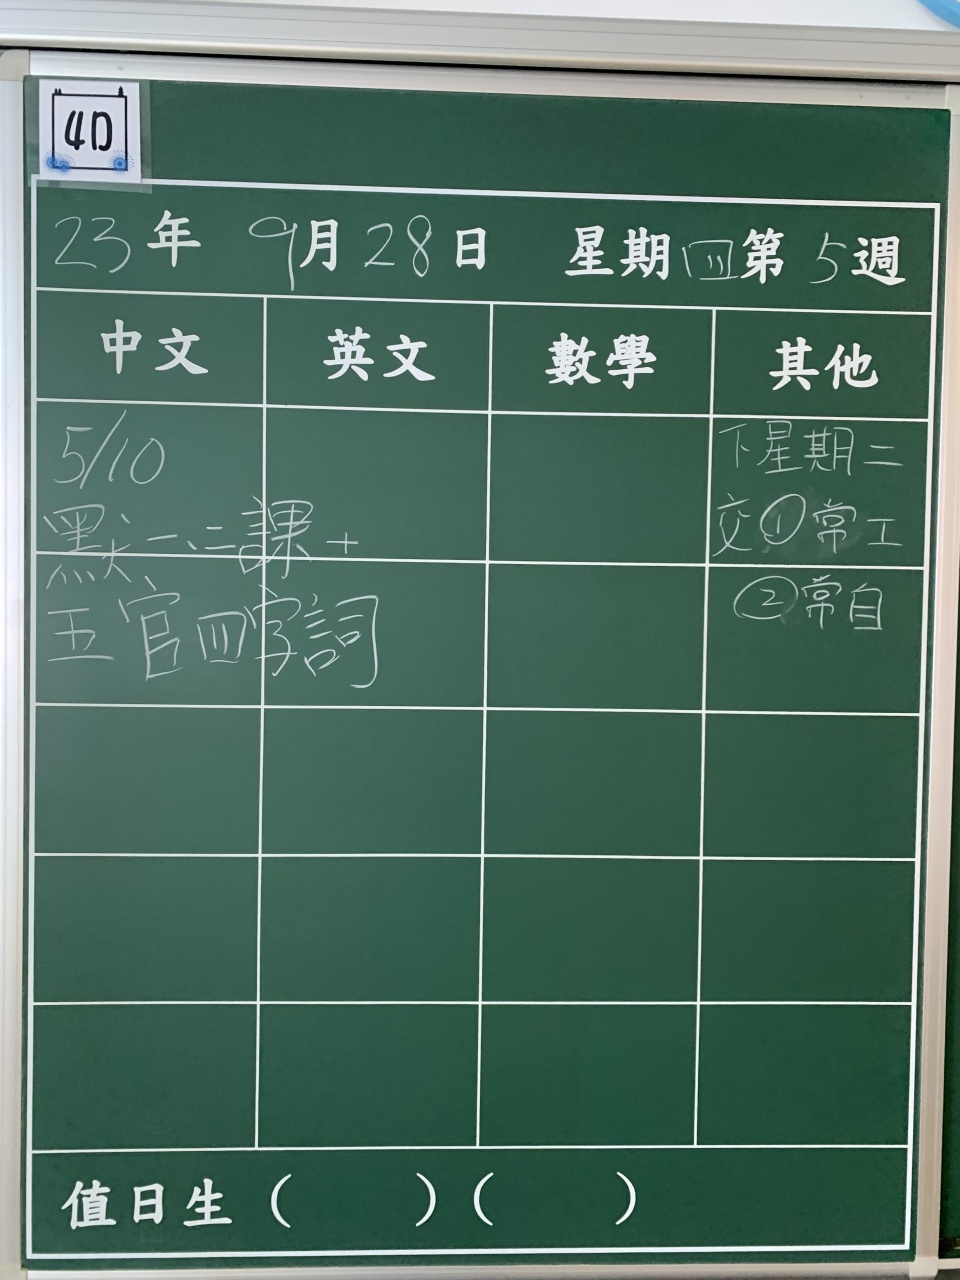 4D
23年 9月28日 星期四第5週
中文 英文 數學 其他
5/10
默一、二課+
五官四字詞
下星期二
交①常工
②常自
值日生( )( )